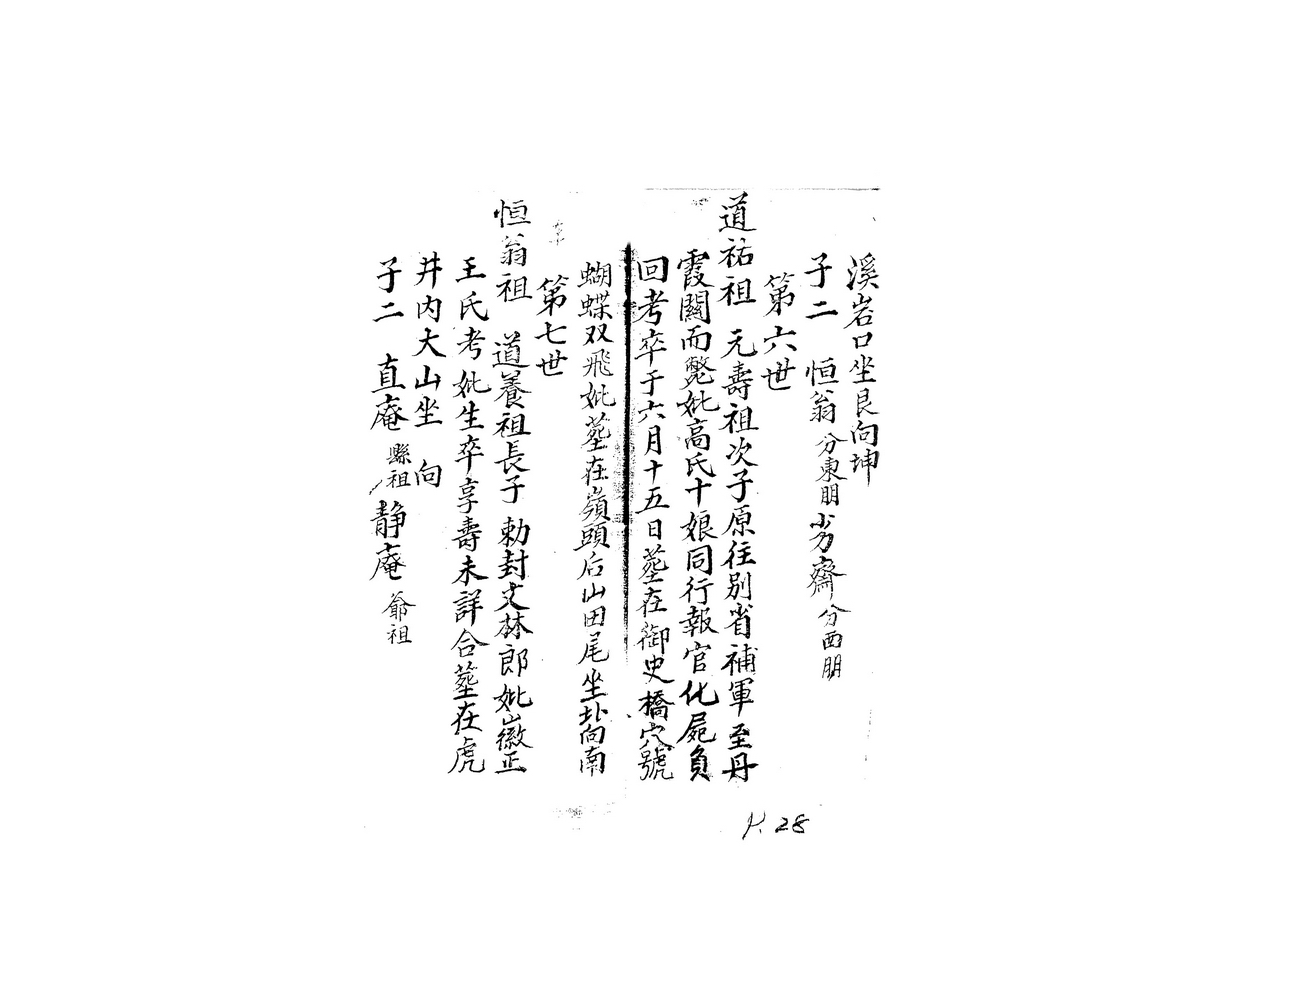 溪岩口坐艮向坤
子二 恒翁 分東朋 岁齋 分西朋
第六世
道祐祖 元壽祖次子原往别省補軍至丹
霞關而斃妣髙氏十娘同行報官化屍負
回考卒于六月十五日塟在御史橋穴號
蝴蝶双飛妣塟在嶺頭后山田尾坐卦向南
第七世
恒翁祖 道養祖長子 勅封文林郎妣徽正
王氏考妣生卒享壽未詳合塟在虎
井内大山坐 向
子二 直庵 縣祖 静庵 爺祖
P. 28